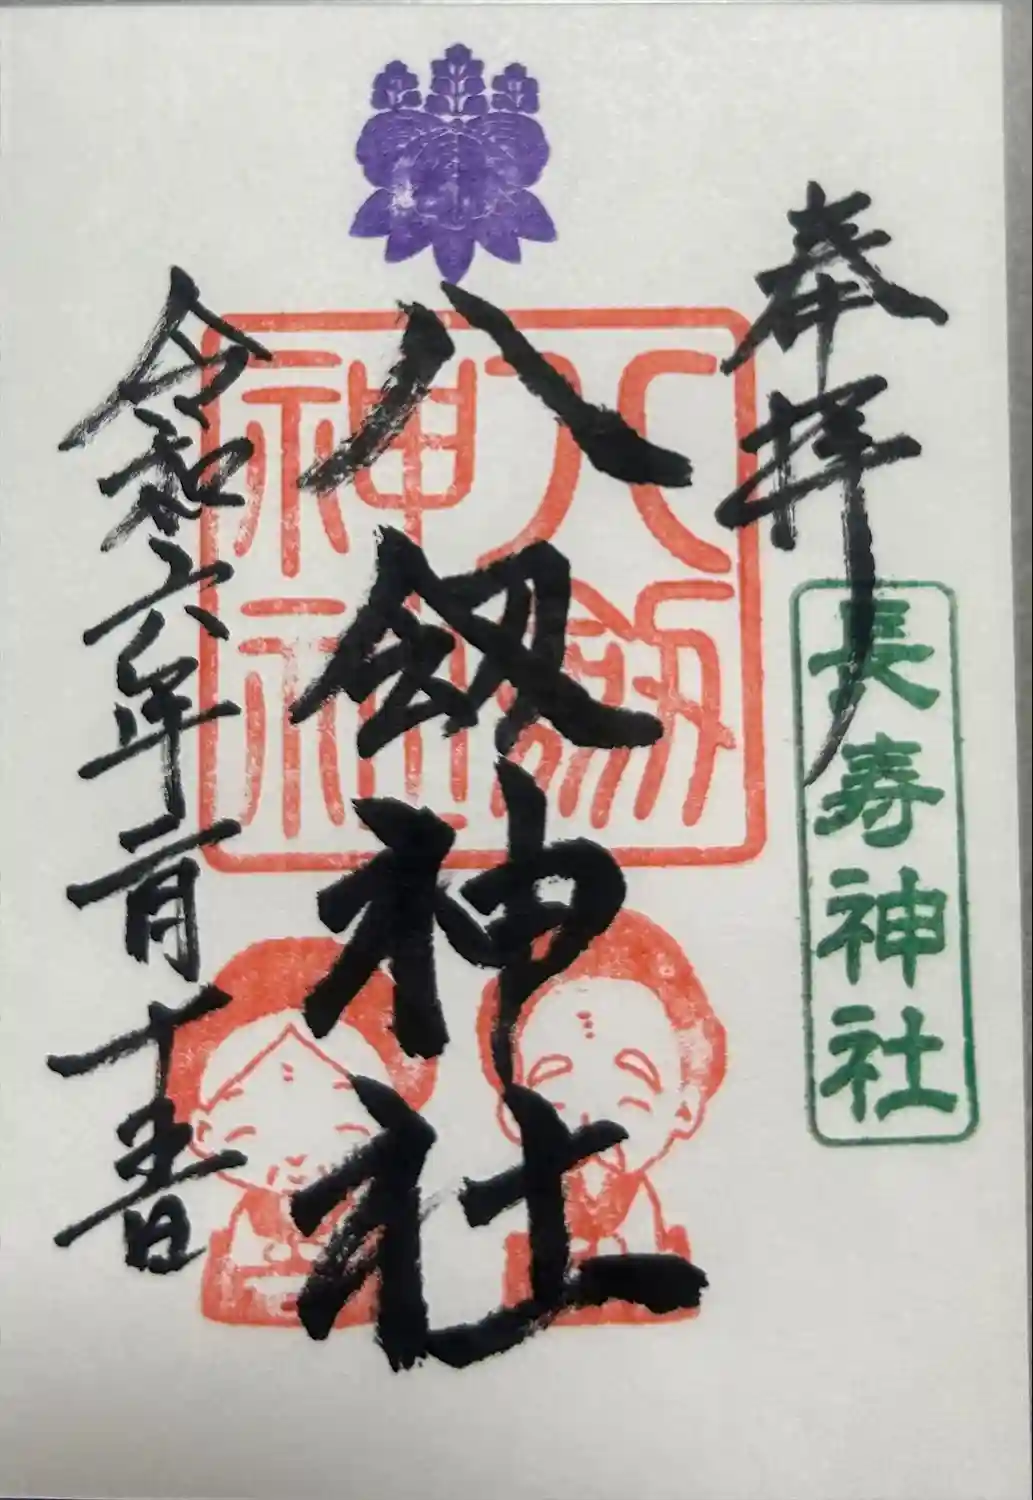 奉拝
長寿神社
八釼神社
八釼神社
令和六年二月十五日